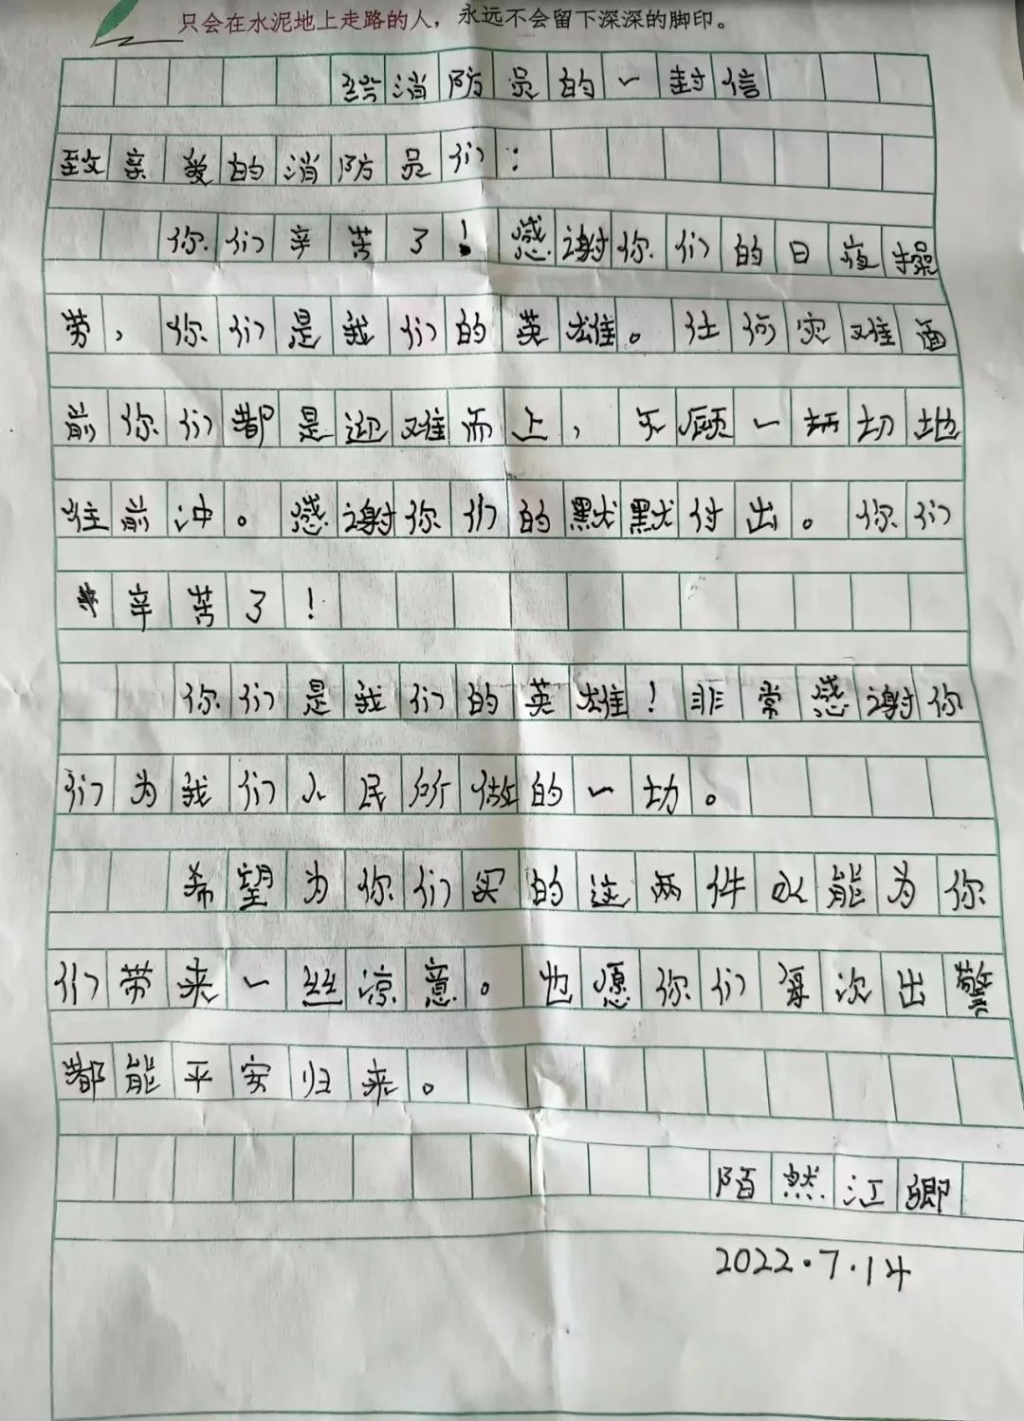 只会在水泥地上走路的人，永远不会留下深深的脚印。
给消防员的一封信
致亲爱的消防员们：
你们辛苦了！感谢你们的日夜操
劳，你们是我们的英雄。任何灾难面
前你们都是迎难而上，不顾一切地
往前冲。感谢你们的默默付出。你们
辛苦了！
你们是我们的英雄！非常感谢你
们为我们人民所做的一切。
希望为你们买的这两件水能为你
们带来一丝凉意。也愿你们每次出警
都能平安归来。
陌然江卿
2022.7.14